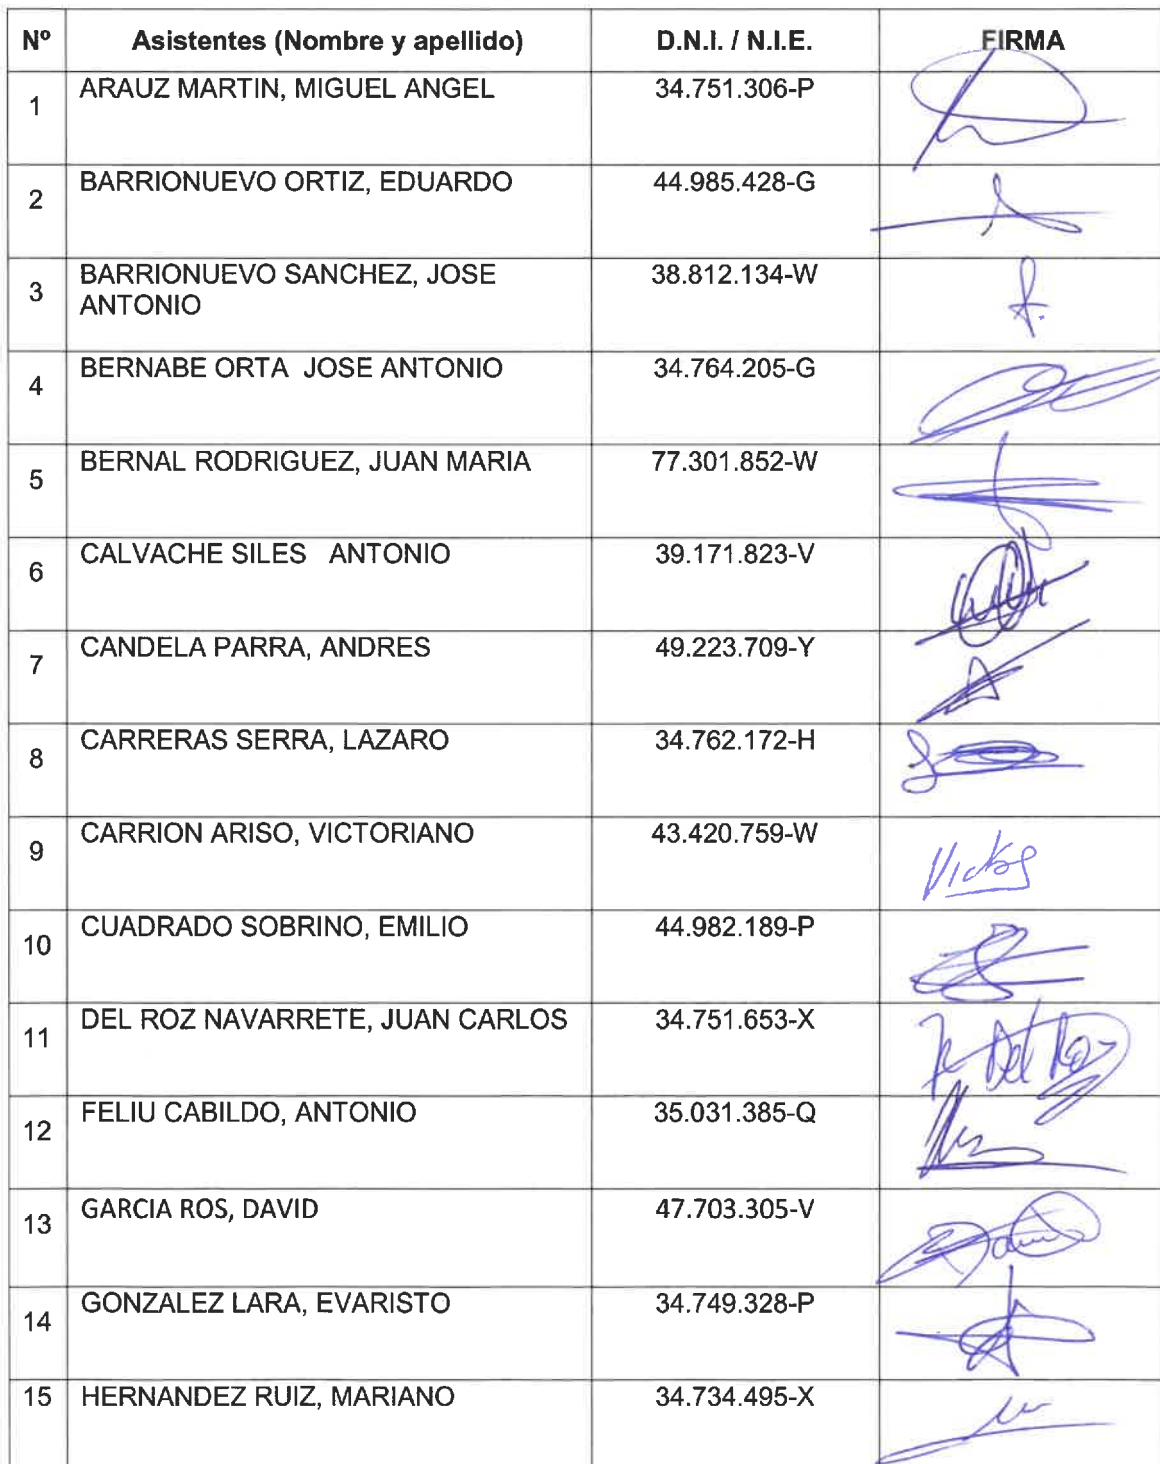 Nº Asistentes (Nombre y apellido) D.N.I. / N.I.E. FIRMA
1 ARAUZ MARTIN, MIGUEL ANGEL 34.751.306-P
2 BARRIONUEVO ORTIZ, EDUARDO 44.985.428-G
3 BARRIONUEVO SANCHEZ, JOSE 38.812.134-W
ANTONIO
4 BERNABE ORTA JOSE ANTONIO 34.764.205-G
5 BERNAL RODRIGUEZ, JUAN MARIA 77.301.852-W
6 CALVACHE SILES ANTONIO 39.171.823-V
7 CANDELA PARRA, ANDRES 49.223.709-Y
8 CARRERAS SERRA, LAZARO 34.762.172-H
9 CARRION ARISO, VICTORIANO 43.420.759-W
10 CUADRADO SOBRINO, EMILIO 44.982.189-P
11 DEL ROZ NAVARRETE, JUAN CARLOS 34.751.653-X
12 FELIU CABILDO, ANTONIO 35.031.385-Q
13 GARCIA ROS, DAVID 47.703.305-V
14 GONZALEZ LARA, EVARISTO 34.749.328-P
15 HERNANDEZ RUIZ, MARIANO 34.734.495-X